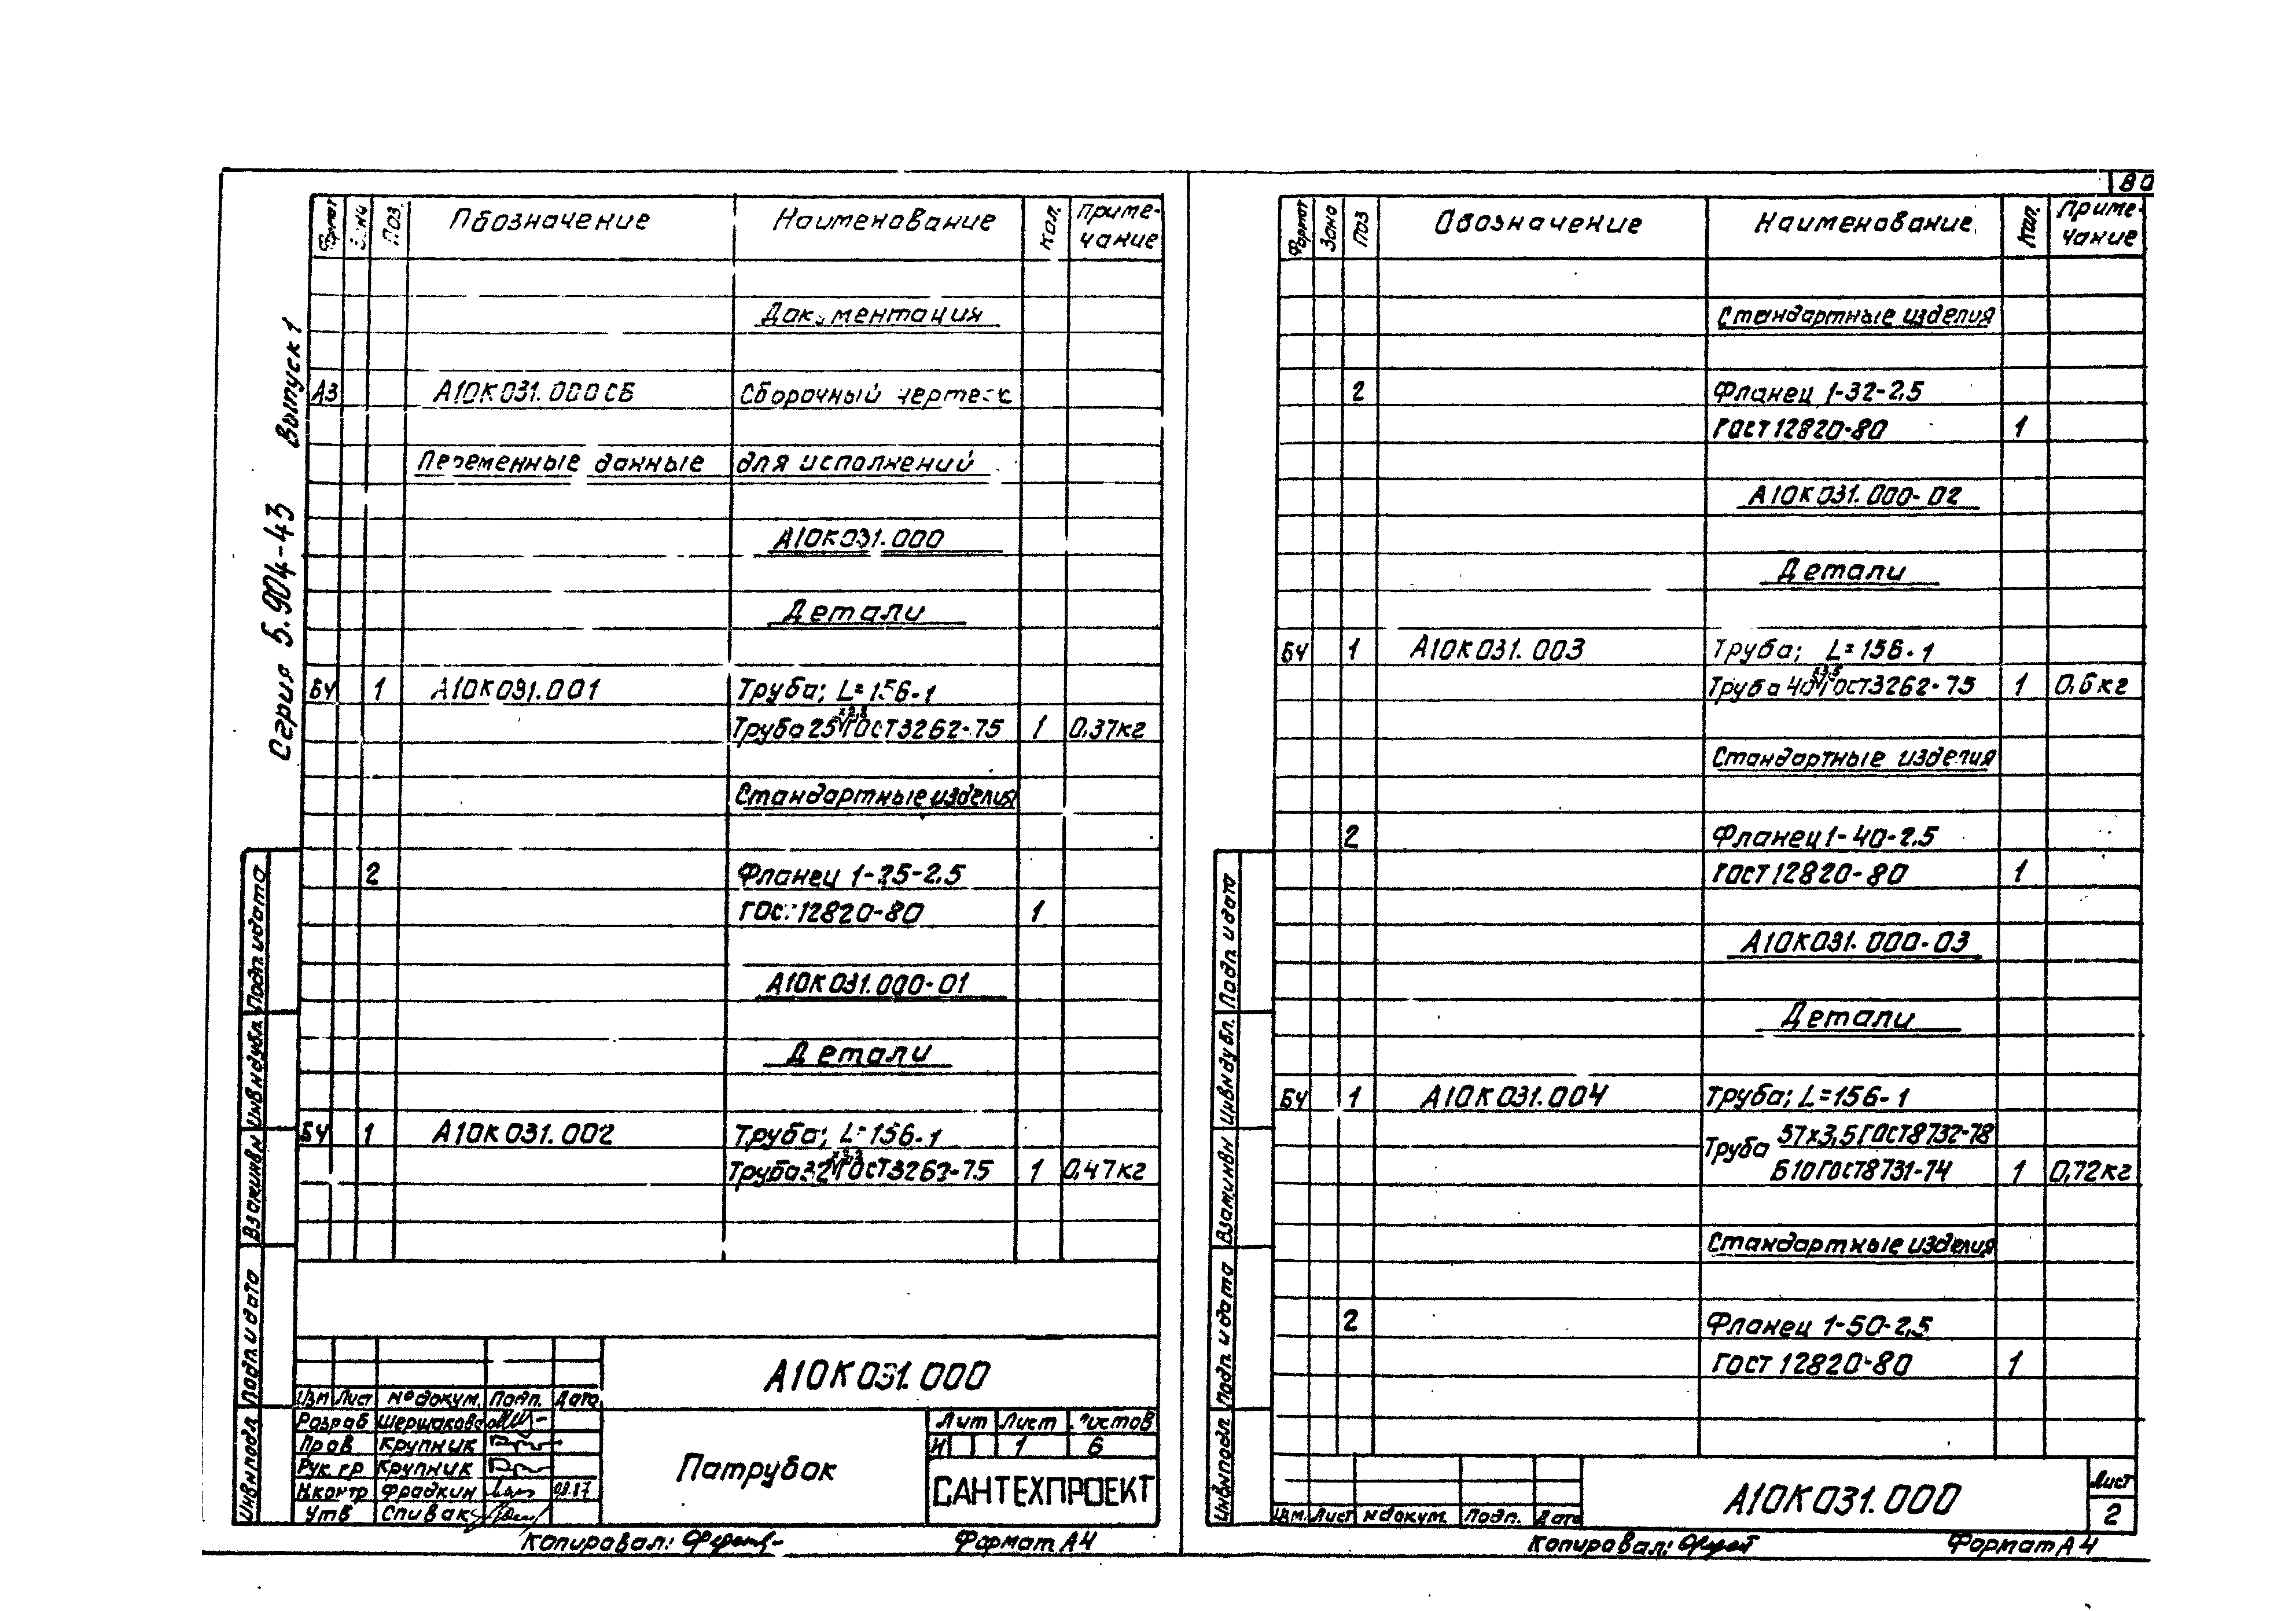 80
Серия 5.904-43 Выпуск 1
Формат Зона Поз. Обозначение Наименование Кол. Приме-
чание
Документация
А3 А10К031.000СБ Сборочный чертеж
Переменные данные для исполнений
А10К031.000
Детали
БЧ 1 А10К031.001 Труба; L=156-1
Труба 25х2,8 ГОСТ3262-75 1 0,37кг
Стандартные изделия
2 Фланец 1-25-2,5
ГОСТ 12820-80 1
А10К031.000-01
Детали
БЧ 1 А10К031.002 Труба; L=156-1
Труба 32х3,2 ГОСТ3262-75 1 0,47кг
Подп. и дата
Инв.N дубл.
Взам.инв.N
Подп. и дата
Инв.N подл.
А10К031.000
Изм Лист № докум. Подп. Дата
Разраб Шершакова
Пров Крупник
Рук.гр Крупник
Н.контр Фрадкин 09.87
Утв Спивак
Патрубок
Лит Лист Листов
И 1 6
САНТЕХПРОЕКТ
Копировал: Формат А4
Формат Зона Поз Обозначение Наименование Кол. Приме-
чание
Стандартные изделия
2 Фланец 1-32-2,5
ГОСТ 12820-80 1
А10К031.000-02
Детали
БЧ 1 А10К031.003 Труба; L=156-1
Труба 40х3,5 ГОСТ3262-75 1 0,6кг
Стандартные изделия
2 Фланец 1-40-2,5
ГОСТ 12820-80 1
А10К031.000-03
Детали
БЧ 1 А10К031.004 Труба; L=156-1
Труба 57х3,5 ГОСТ8732-78
Б10 ГОСТ8731-74 1 0,72кг
Стандартные изделия
2 Фланец 1-50-2,5
ГОСТ 12820-80 1
Подп. и дата
Инв.N дубл.
Взам.инв.N
Подп. и дата
Инв.N подл.
Изм. Лист N докум. Подп. Дата
А10К031.000
Лист
2
Копировал: Формат А4